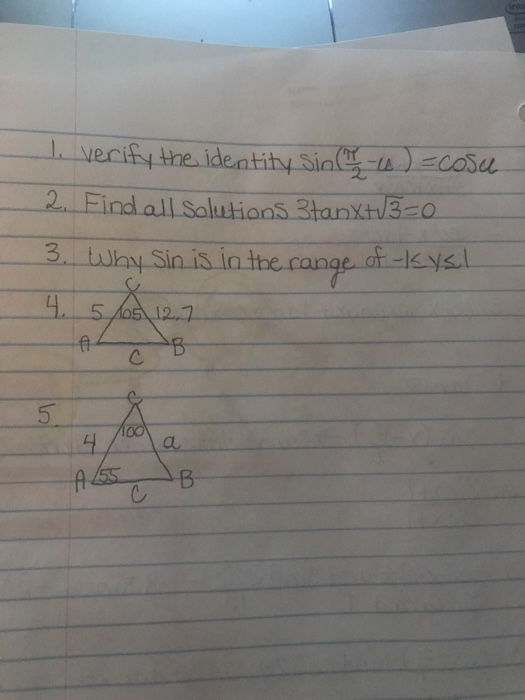 1. verify the identity sin(π/2-u) = cosu
2. Find all solutions 3tanx+√3=0
3. Why sin is in the range of -1≤y≤1
C
4. 5 105 12.7
A C B
C
5.
4 100 a
A 55 C B